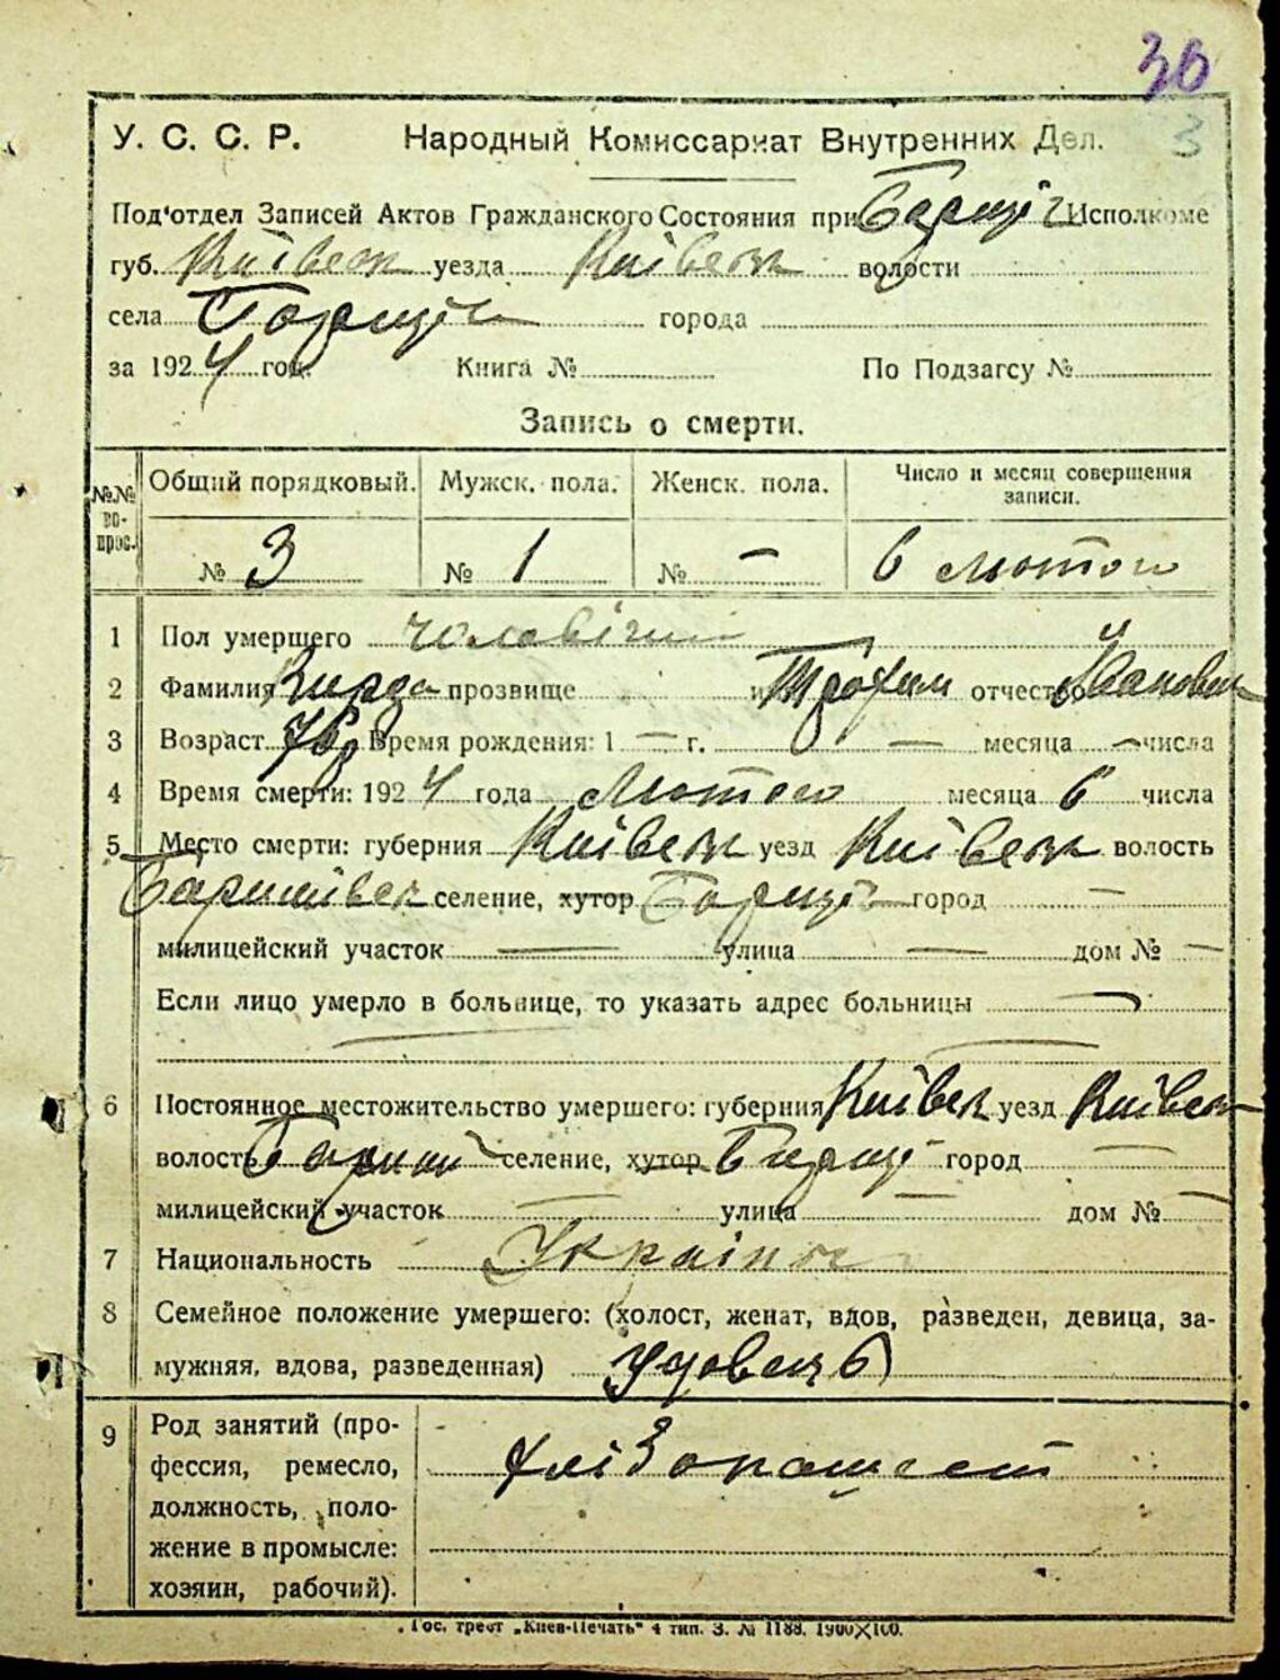 36
3
У. С. С. Р. Народный Комиссариат Внутренних Дел.
Под'отдел Записей Актов Гражданского Состояния при Исполкоме
губ. Київськ уезда Київськ волости
села города
за 1924 год. Книга № По Подзагсу №
Запись о смерти.
№№ вопрос. Общий порядковый. Мужск. пола. Женск. пола. Число и месяц совершения записи.
№ 3 № 1 № — 6 лютого
1 Пол умершего чоловічий
2 Фамилия прозвище и Трофим отчество Иванович
3 Возраст Время рождения: 1 — г. — месяца — числа
4 Время смерти: 1924 года Лютого месяца 6 числа
5 Место смерти: губерния Київськ уезд Київськ волость
селение, хутор город —
милицейский участок — улица — дом № —
Если лицо умерло в больнице, то указать адрес больницы —
6 Постоянное местожительство умершего: губерния Київськ уезд Київськ
волость селение, хутор город —
милицейский участок — улица — дом № —
7 Национальность Українец
8 Семейное положение умершего: (холост, женат, вдов, разведен, девица, за-
мужняя, вдова, разведенная) Удовець
9 Род занятий (про-
фессия, ремесло,
должность, поло-
жение в промысле:
хозяин, рабочий).
Гос. трест „Киев-Печать" 4 тип. З. № 1188. 1900×100.